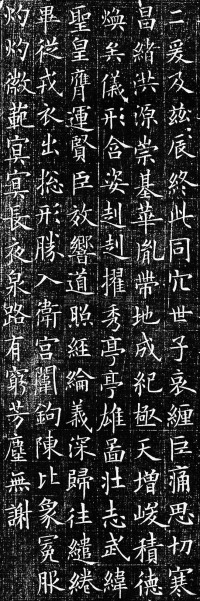 二爰及茲辰終此同穴世子哀纏巨痛思切寒
昌緒洪源崇基華胤帶地成紀極天增峻積德
煥矣儀形含姿擢秀亭亭雄啚壯志武緯
聖皇膺運賢臣放響道照經綸義深歸往繾綣
畢從戎衣出揔形勝入衛宮闈鉤陳比象冕服
灼灼徽範冥冥長夜泉路有窮芳塵無謝